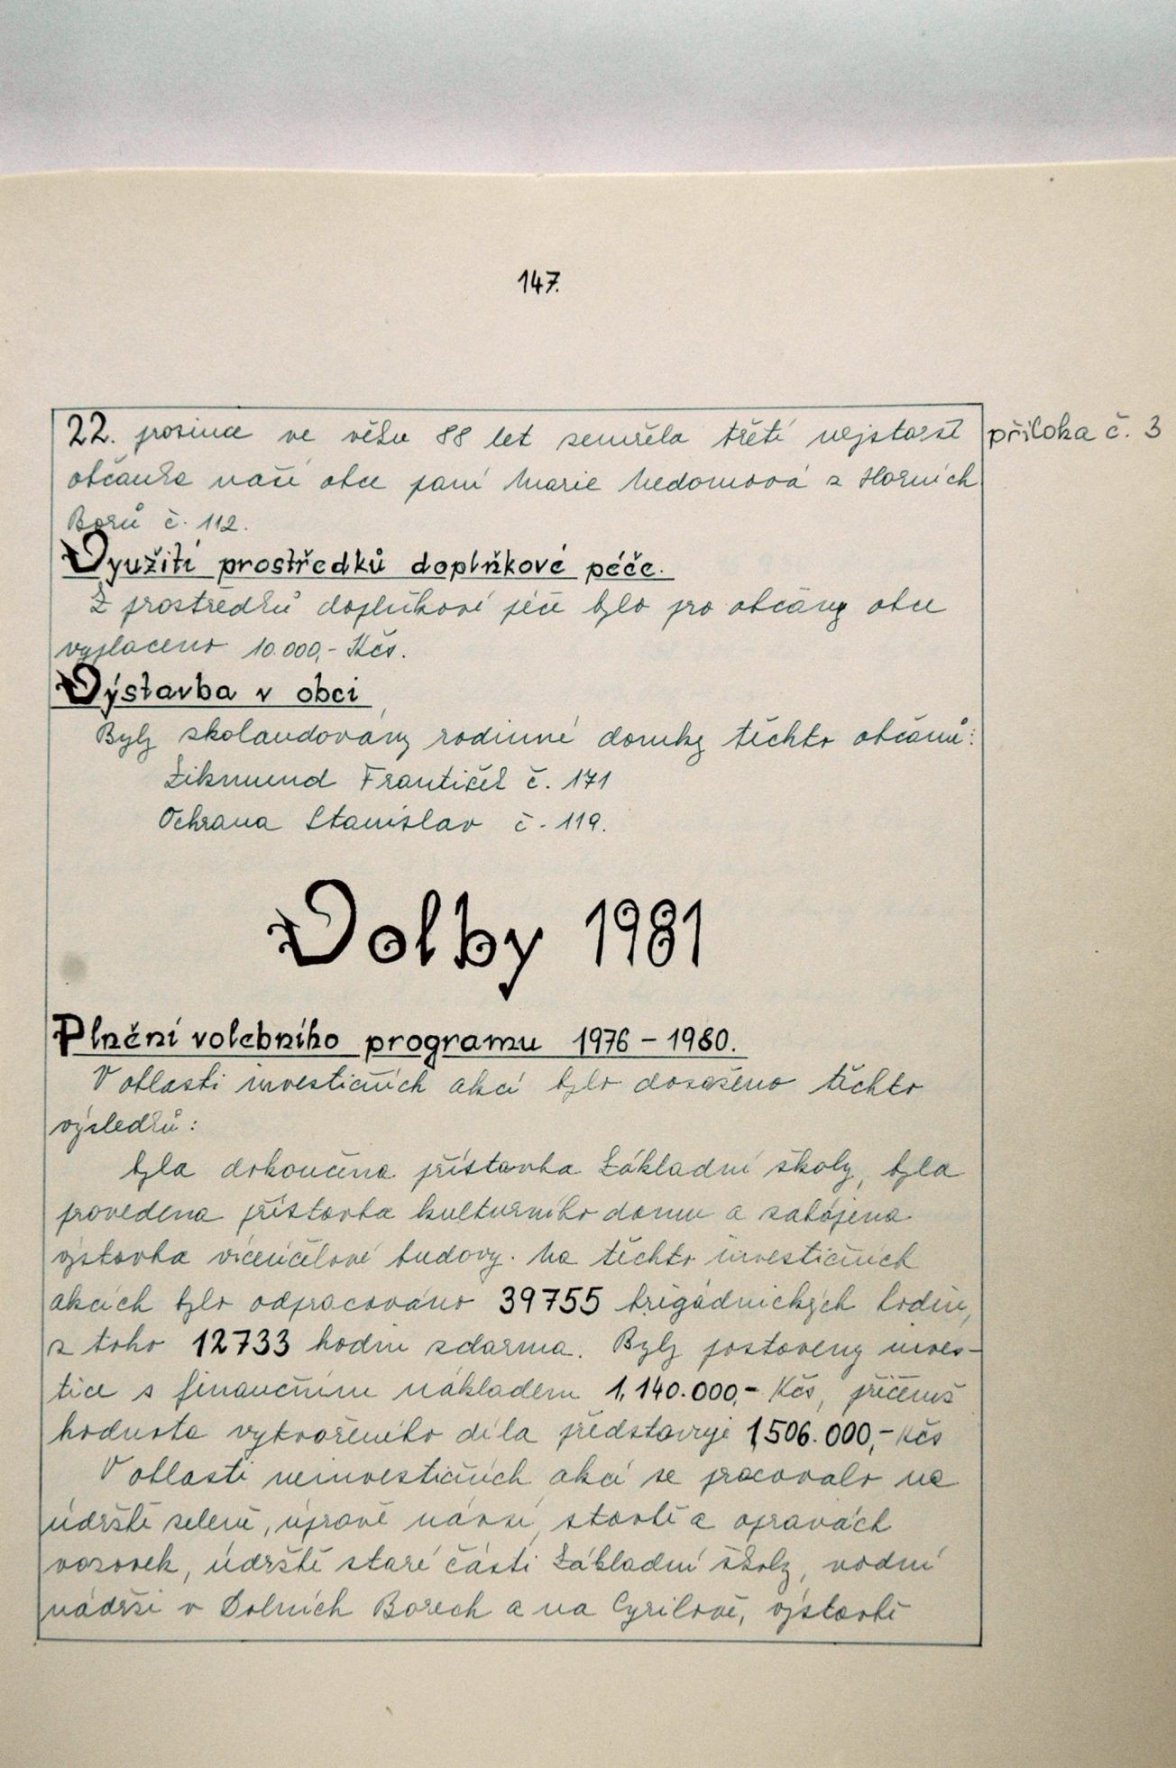 147.
22. prosince ve věku 88 let zemřela třetí nejstarší
příloha č. 3
občanka naší obce paní Marie Nedomová z Horních
Borů č. 112.
Využití prostředků doplňkové péče.
Z prostředků doplňkové péče bylo pro občany obce
vyplaceno 10.000,- Kčs.
Výstavba v obci
Byly zkolaudovány rodinné domky těchto občanů:
Zikmund František č. 171
Ochrana Stanislav č. 119.
Volby 1981
Plnění volebního programu 1976 - 1980.
V oblasti investičních akcí bylo dosaženo těchto
výsledků:
byla dokončena přístavba Základní školy, byla
provedena přístavba kulturního domu a zahájena
výstavba víceúčelové budovy. Na těchto investičních
akcích bylo odpracováno 39755 brigádnických hodin,
z toho 12733 hodin zdarma. Byly postaveny inves-
tice s finančním nákladem 1,140.000,- Kčs, přičemž
hodnota vytvořeného díla představuje 1,506.000,- Kčs
V oblasti neinvestičních akcí se pracovalo na
údržbě zeleně, úpravě návsí, stavbě a opravách
vozovek, údržbě staré části Základní školy, vodní
nádrži v Dolních Borech a na Cyrilově, výstavbě